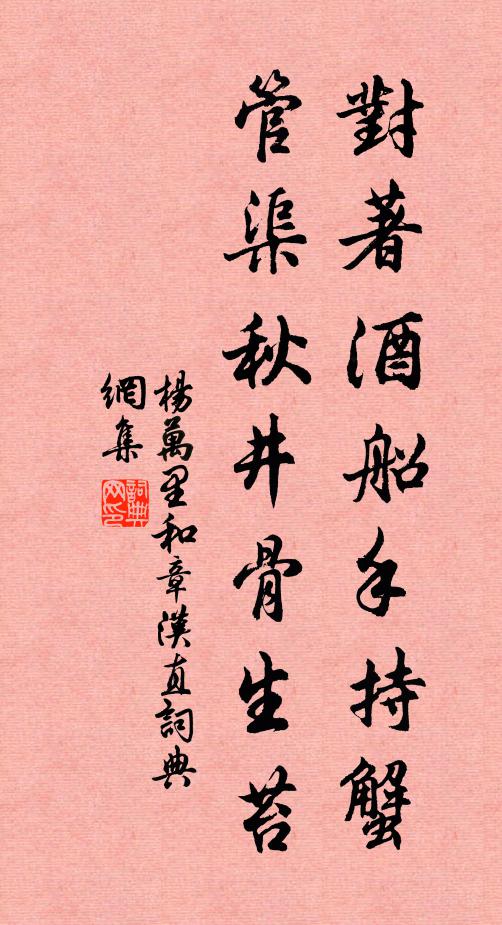 對著酒船手持蟹
管渠秋井骨生苔
楊萬里和章漢直詞典
網集
詞典
网印